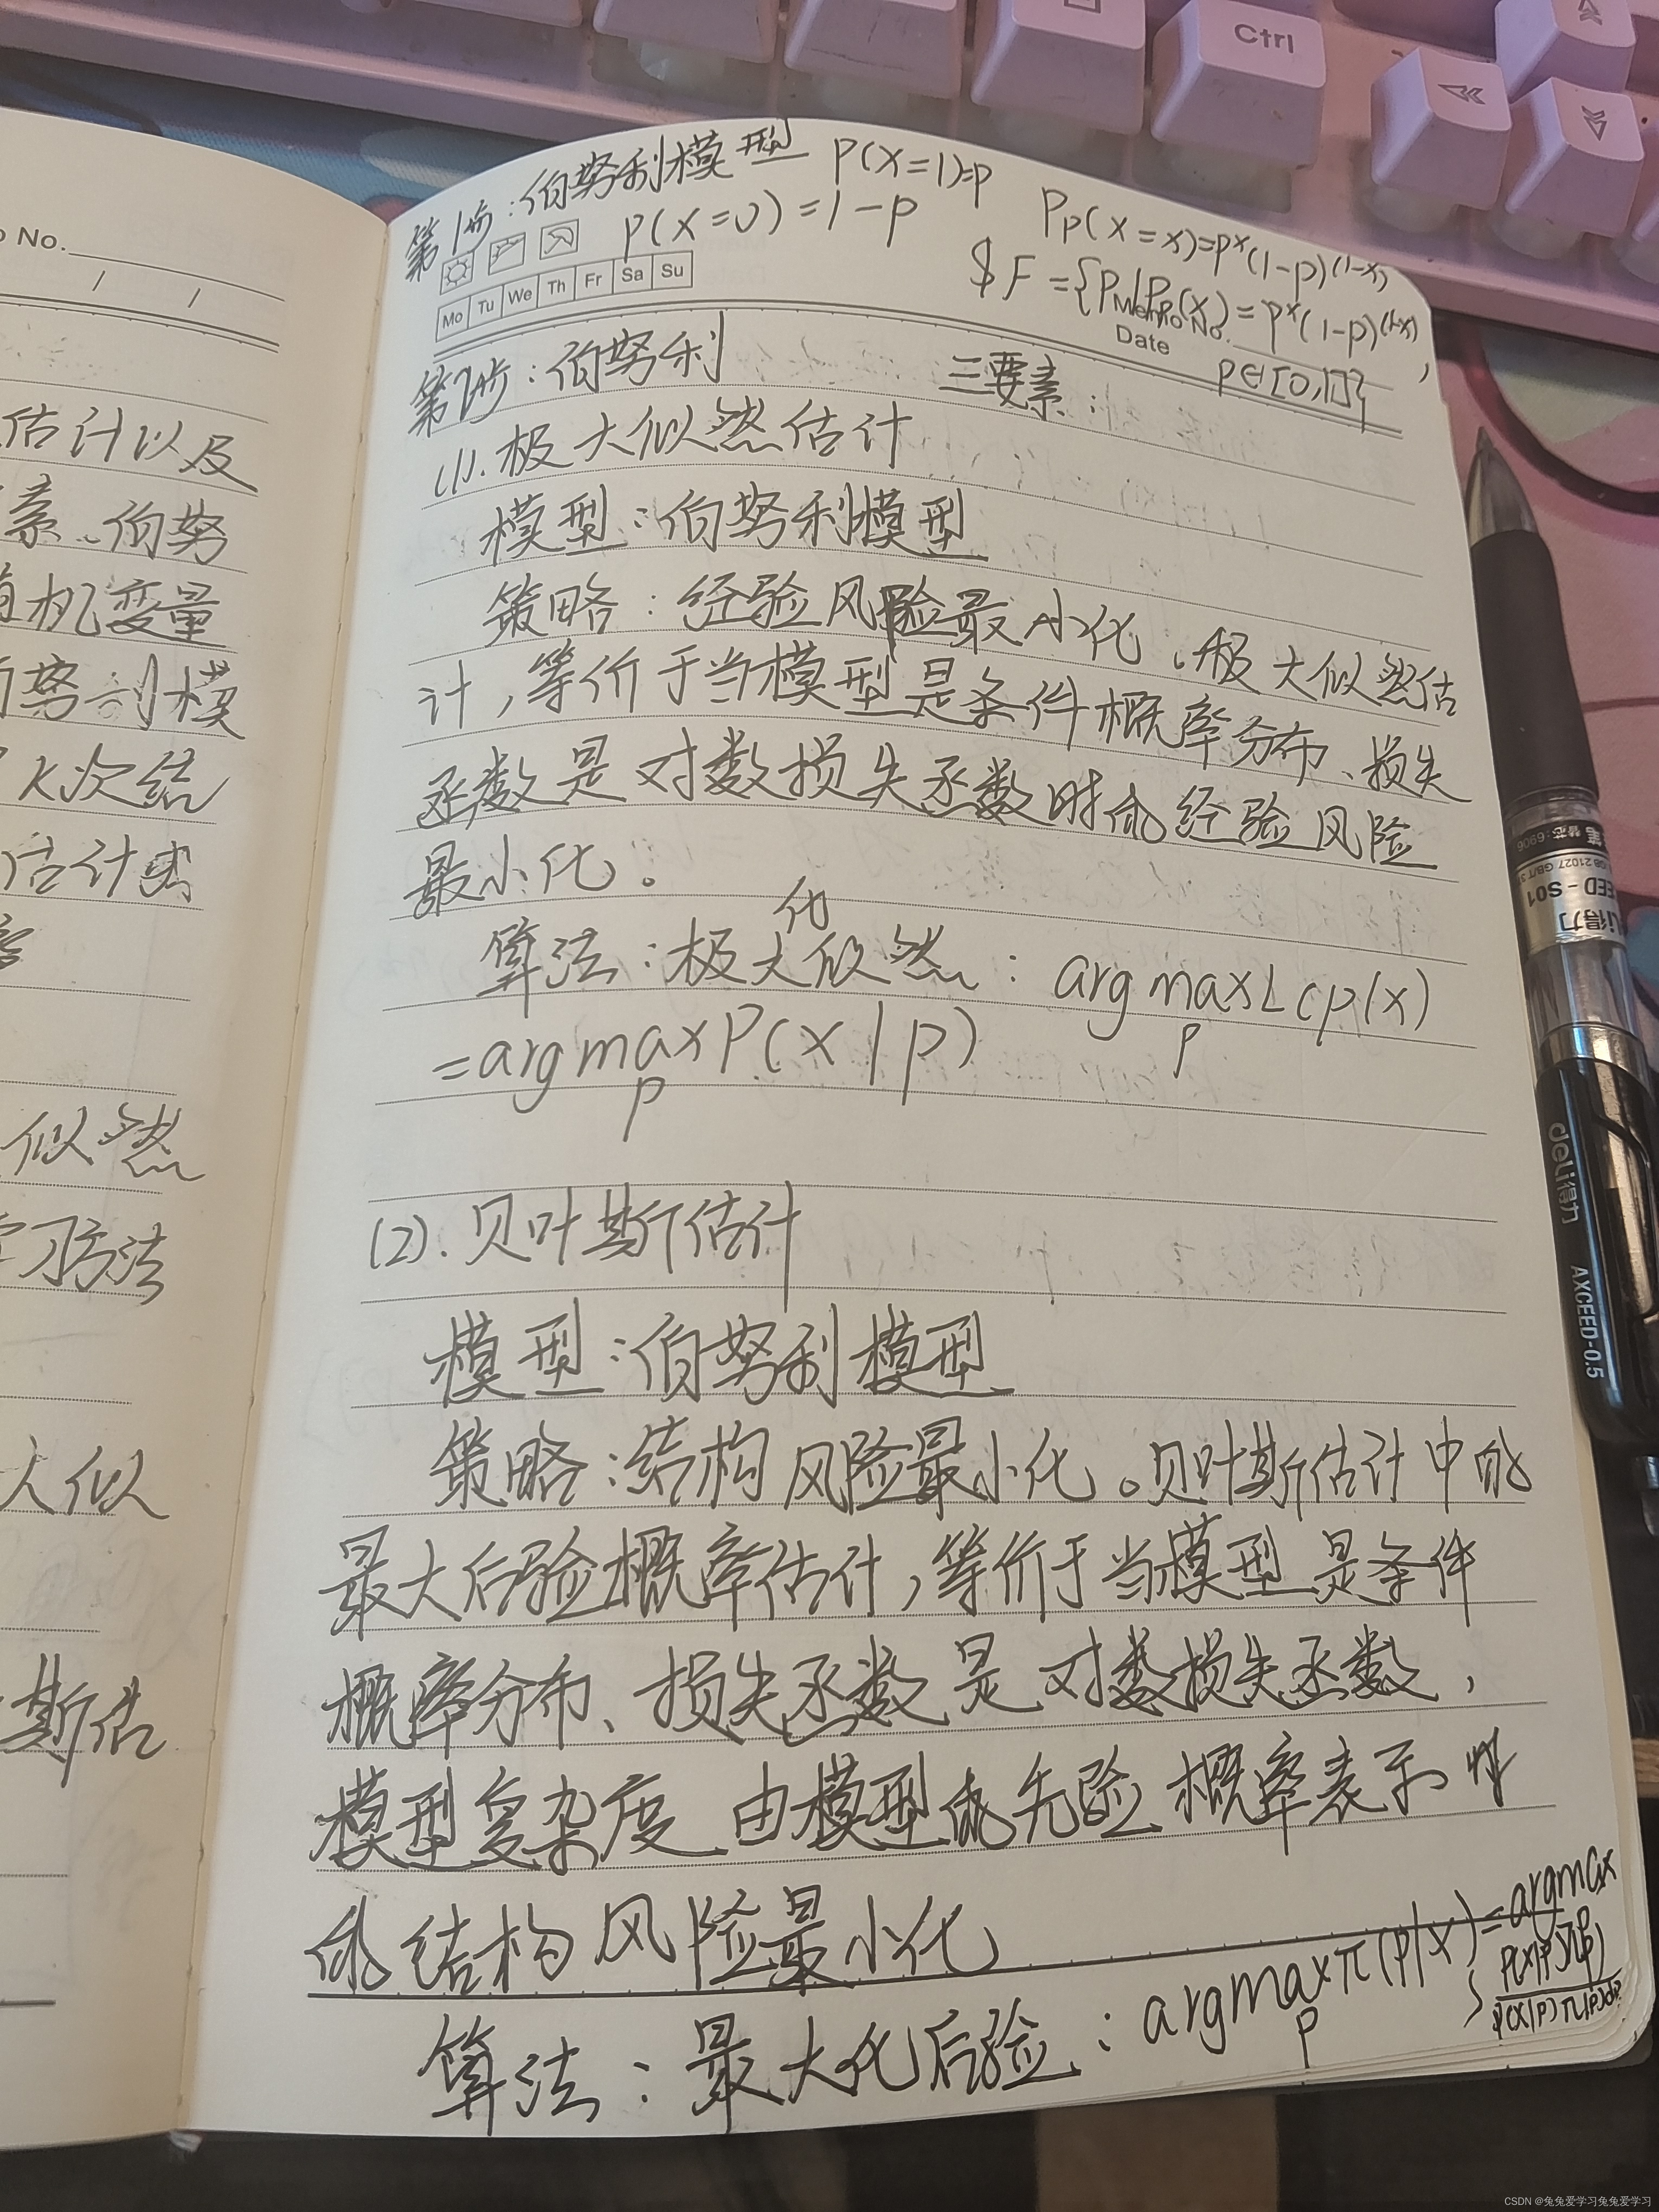 Ctrl
第1步：伯努利模型 P(X=1)=p
P(X=0)=1-p
Pp(X=x)=p^x(1-p)^(1-x)
F={P|Pp(x)=p^x(1-p)^(1-x),
p∈[0,1]}
Mo Tu We Th Fr Sa Su
Memo No.
Date
第2步：伯努利 三要素：
(1).极大似然估计
模型：伯努利模型
策略：经验风险最小化。极大似然估
计，等价于当模型是条件概率分布、损失
函数是对数损失函数时的经验风险
最小化。
算法：极大化似然：arg max L(p|x)
p
=arg max P(x|p)
p
(2).贝叶斯估计
模型：伯努利模型
策略：结构风险最小化。贝叶斯估计中的
最大后验概率估计，等价于当模型是条件
概率分布、损失函数是对数损失函数，
模型复杂度由模型的先验概率表示时
的结构风险最小化
算法：最大化后验：arg max π(p|x)=argmax
p
P(x|p)π(p)
∫P(x|p)π(p)dp
o No.
/ /
估计以及
素、伯努
机变量
努利模
k次结
估计或
似然
学习方法
大似
斯估
deli得力 AXCEED-0.5
CSDN @兔兔爱学习兔兔爱学习